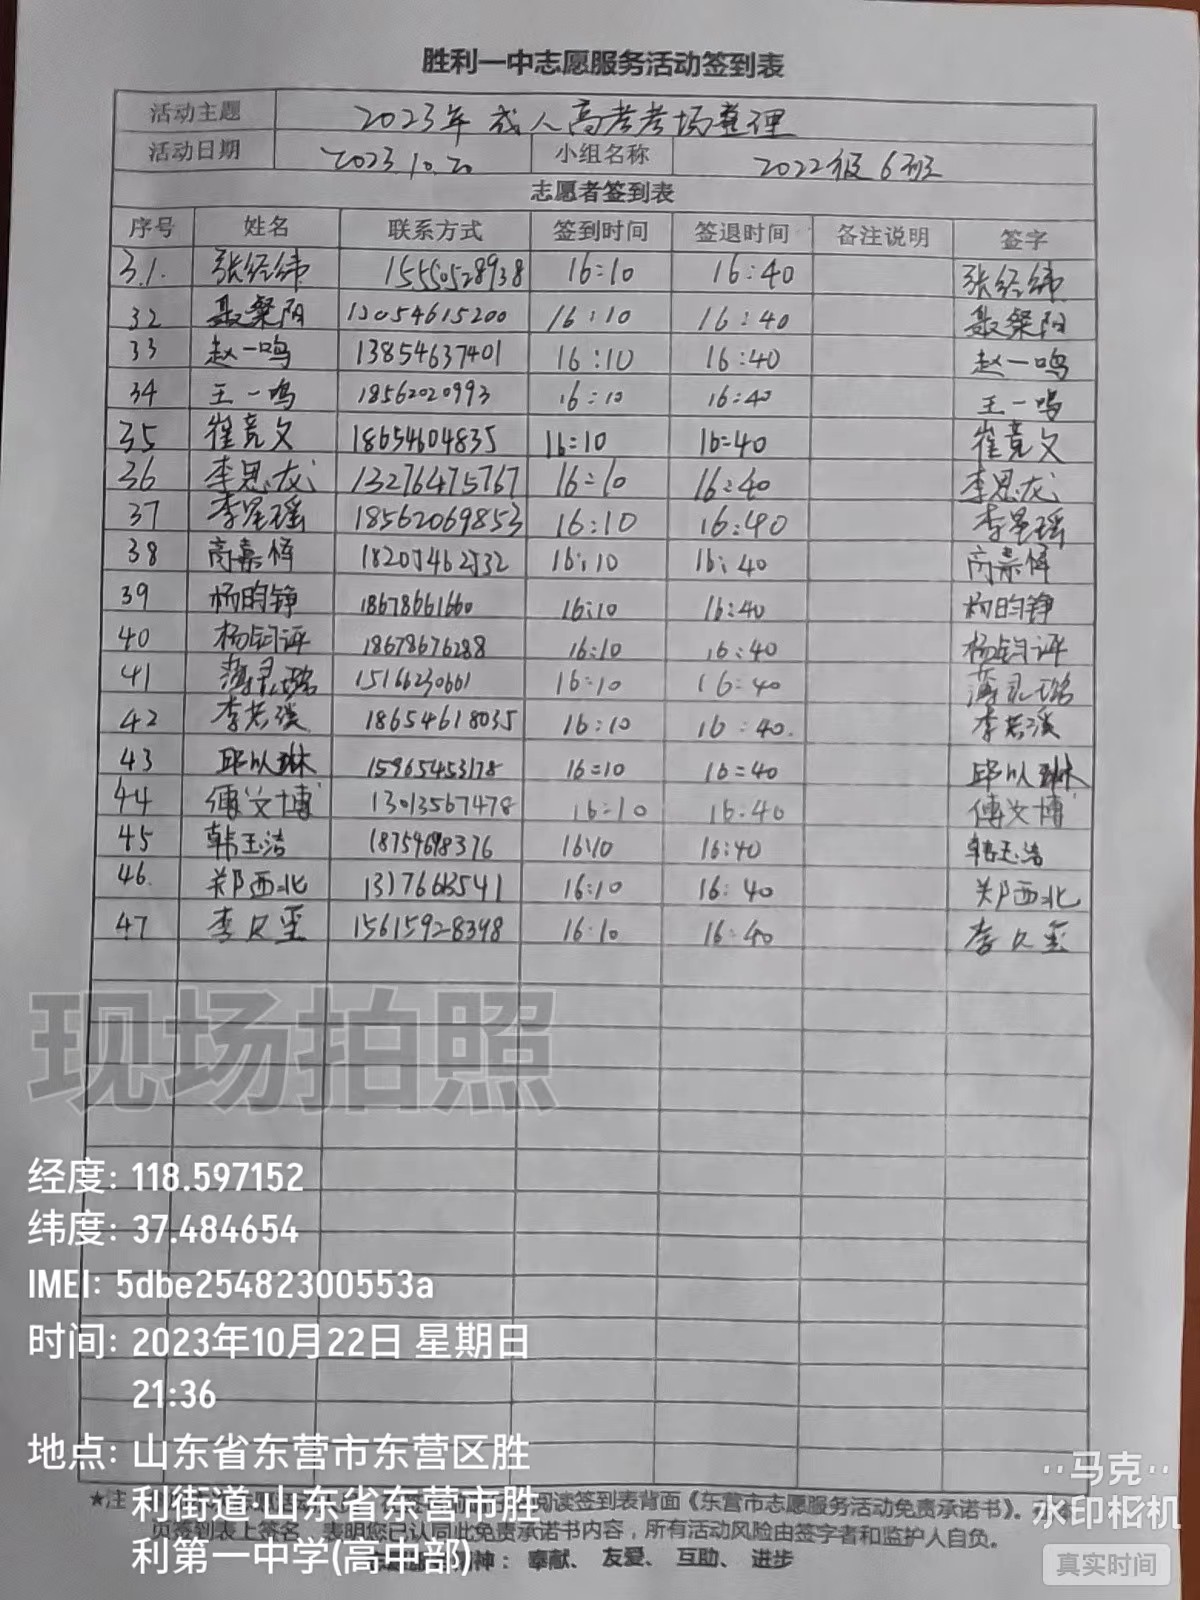 胜利一中志愿服务活动签到表
活动主题 2023年成人高考考场整理
活动日期 2023.10.20 小组名称 2022级6班
志愿者签到表
序号 姓名 联系方式 签到时间 签退时间 备注说明 签字
31. 张经纬 15550528938 16:10 16:40 张经纬
32 聂粲阳 13054615200 16:10 16:40 聂粲阳
33 赵一鸣 13854637401 16:10 16:40 赵一鸣
34 王一鸣 18562020993 16:10 16:40 王一鸣
35 崔竞文 18654604835 16:10 16:40 崔竞文
36 李思龙 13276475767 16:10 16:40 李思龙
37 李星瑶 18562069853 16:10 16:40 李星瑶
38 高嘉怿 18205462532 16:10 16:40 高嘉怿
39 杨昀铮 18678661660 16:10 16:40 杨昀铮
40 杨钧评 18678676288 16:10 16:40 杨钧评
41 薄灵璐 15166230661 16:10 16:40 薄灵璐
42 李若溪 18654618035 16:10 16:40. 李若溪
43 邱以琳 15965453178 16:10 16:40 邱以琳
44 傅文博 13013567478 16:10 16:40 傅文博
45 韩玉洁 18754698376 16:10 16:40 韩玉洁
46. 郑西北 16:10 16:40 郑西北
47 李 15615928398 16:10 16:40 李
现场拍照
经度: 118.597152
纬度: 37.484654
IMEI: 5dbe25482300553a
时间: 2023年10月22日 星期日
21:36
地点: 山东省东营市东营区胜
利街道 山东省东营市胜
利第一中学(高中部)
★注
阅读签到表背面《东营市志愿服务活动免责承诺书》.
页签到表上签名、表明您已认同此免责承诺书内容，所有活动风险由签字者和监护人自负。
神： 奉献、 友爱、 互助、 进步
马克
水印相机
真实时间